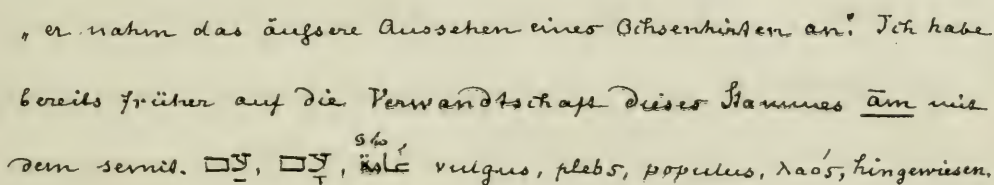 „er nahm das äuſsere Aussehen eines Ochsenhirten an.“ Ich habe
bereits früher auf die Verwandtschaft dieses Stammes ām mit
dem semit. עַם, עָם, عَامَّةٌ vulgus, plebs, populus, λαός, hingewiesen.